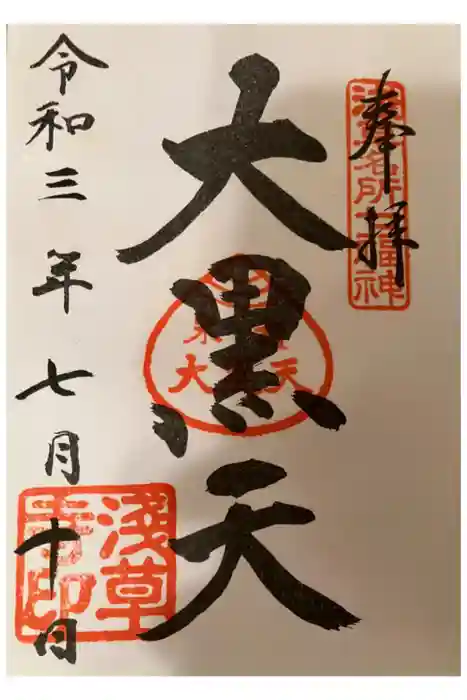 奉拝
浅草名所七福神
大黒天
令和三年七月十日
浅草寺印